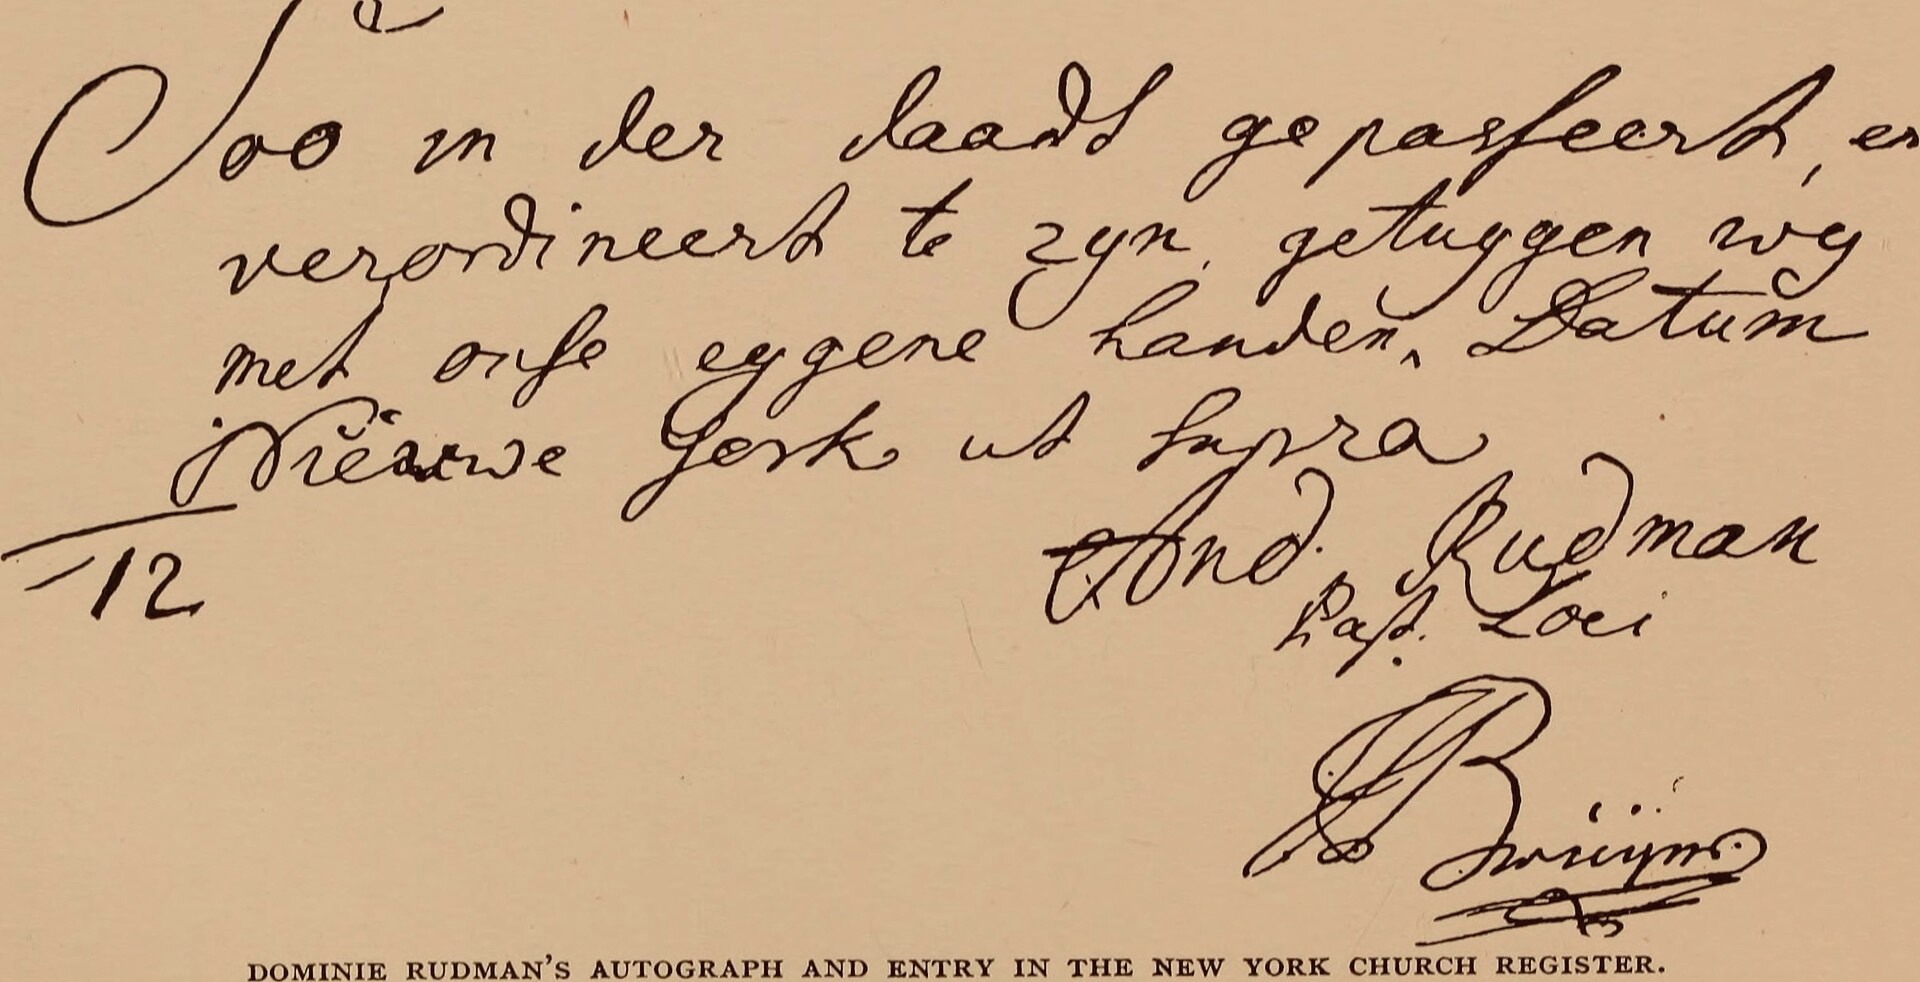 Soo in der daadt gepasseert, en
verordineert te zyn, getuygen wy
met onse eygene handen. Datum
Niëuwe Jork ut supra
And. Rudman
Past. Loci
12
DOMINIE RUDMAN'S AUTOGRAPH AND ENTRY IN THE NEW YORK CHURCH REGISTER.